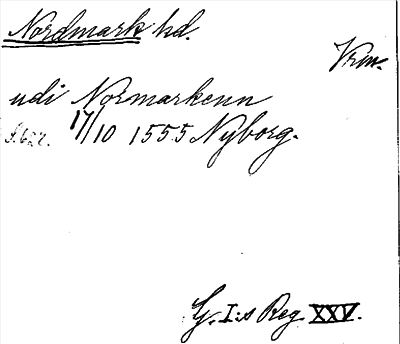 Nordmark hd.
Vrm.
udi Normarkenn
S. 622. 17/10 1555 Nyborg.
G. I:s Reg. XXV.